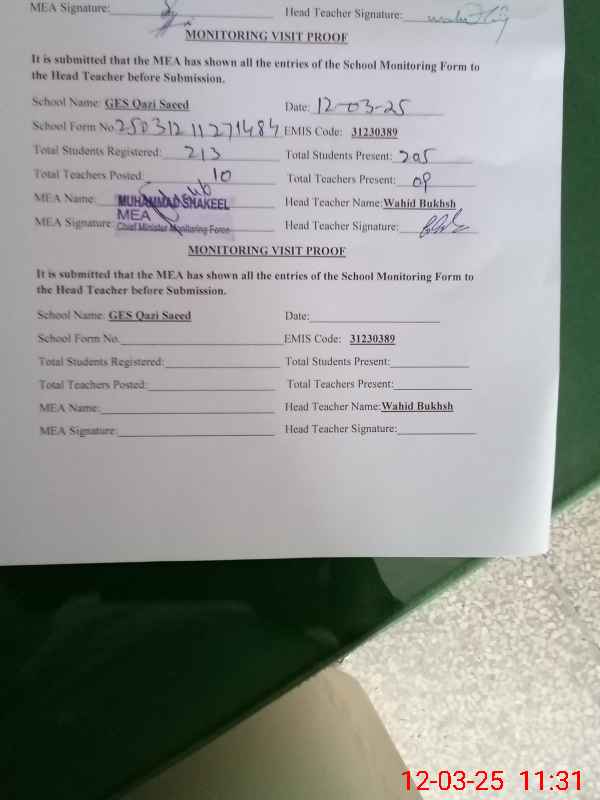 MEA Signature: Head Teacher Signature:
MONITORING VISIT PROOF
It is submitted that the MEA has shown all the entries of the School Monitoring Form to
the Head Teacher before Submission.
School Name: GES Qazi Saeed Date: 12-03-25
School Form No. 250312 11271484 EMIS Code: 31230389
Total Students Registered: 213 Total Students Present: 205
Total Teachers Posted: 10 Total Teachers Present: 09
MEA Name: MUHAMMAD SHAKEEL Head Teacher Name: Wahid Bukhsh
MEA
MEA Signature: Chief Minister Monitoring Force Head Teacher Signature:
MONITORING VISIT PROOF
It is submitted that the MEA has shown all the entries of the School Monitoring Form to
the Head Teacher before Submission.
School Name: GES Qazi Saeed Date:
School Form No. EMIS Code: 31230389
Total Students Registered: Total Students Present:
Total Teachers Posted: Total Teachers Present:
MEA Name: Head Teacher Name: Wahid Bukhsh
MEA Signature: Head Teacher Signature:
12-03-25 11:31